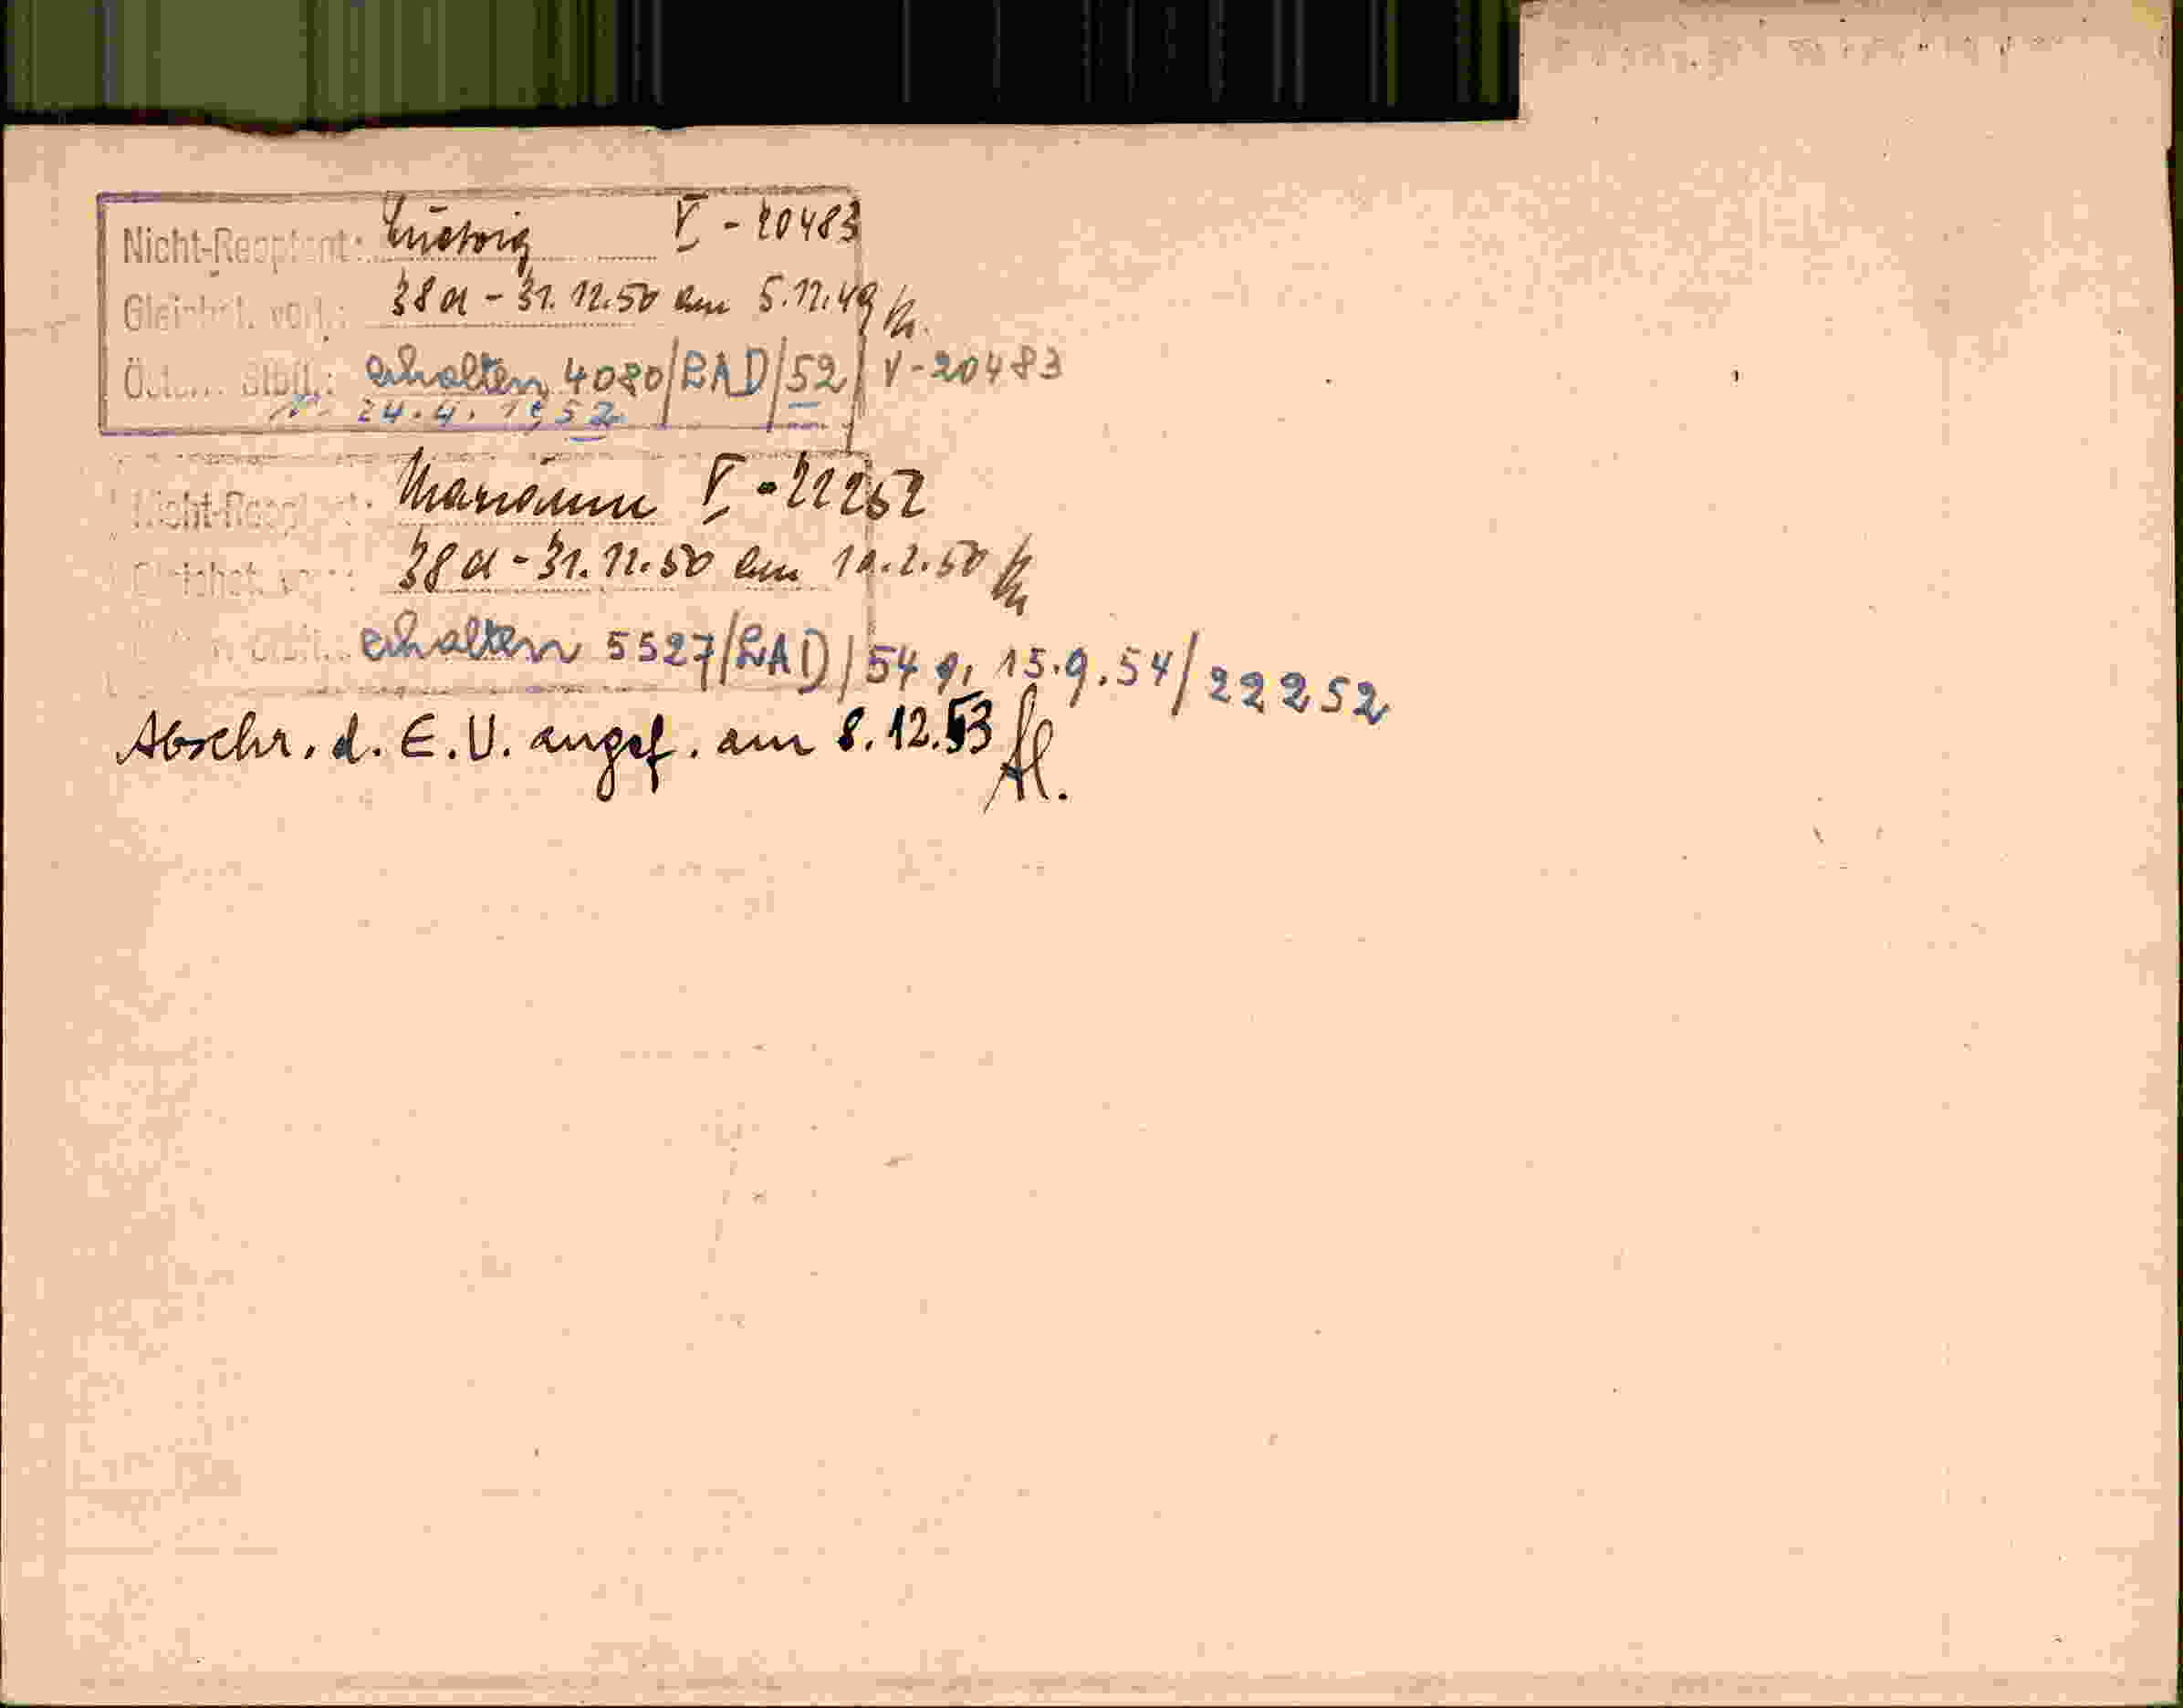 Nicht-Reoptant: Ludwig V - 20483
Gleichst. vorl.: 38a - 31.12.50 am 5.11.49
Österr. Stbü.: erhalten 4080/LAD/52/ V-20483
24.4.1952
Nicht-Reoptant: Marianne V - 22252
Gleichst. vorl.: 38a - 31.12.50 am 10.2.50
erhalten 5527/LAD/54 v. 15.9.54/22252
Abschr. d. E.V. angef. am 8.12.53